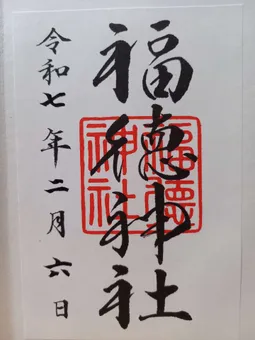 福徳神社
令和七年二月六日
福徳神社